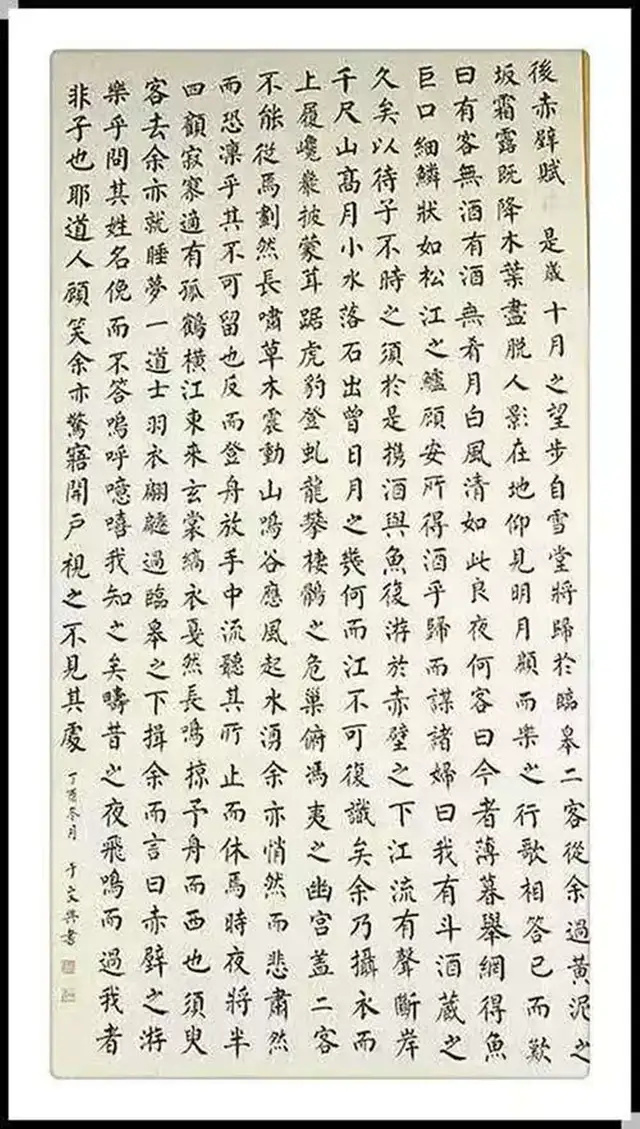 後赤壁賦 是歲十月之望步自雪堂將歸於臨皋二客從余過黃泥之
坂霜露既降木葉盡脫人影在地仰見明月顧而樂之行歌相答已而歎
曰有客無酒有酒無肴月白風清如此良夜何客曰今者薄暮舉網得魚
巨口細鱗狀如松江之鱸顧安所得酒乎歸而謀諸婦曰我有斗酒藏之
久矣以待子不時之須於是攜酒與魚復游於赤壁之下江流有聲斷岸
千尺山高月小水落石出曾日月之幾何而江不可復識矣余乃攝衣而
上履巉巖披蒙茸踞虎豹登虬龍攀棲鶻之危巢俯馮夷之幽宮蓋二客
不能從焉劃然長嘯草木震動山鳴谷應風起水湧余亦悄然而悲肅然
而恐凜乎其不可留也反而登舟放手中流聽其所止而休焉時夜將半
四顧寂寥適有孤鶴橫江東來玄裳縞衣戛然長鳴掠予舟而西也須臾
客去余亦就睡夢一道士羽衣翩躚過臨皋之下揖余而言曰赤壁之游
樂乎問其姓名俛而不答嗚呼噫嘻我知之矣疇昔之夜飛鳴而過我者
非子也耶道人顧笑余亦驚寤開戶視之不見其處
丁酉冬月 于文興書